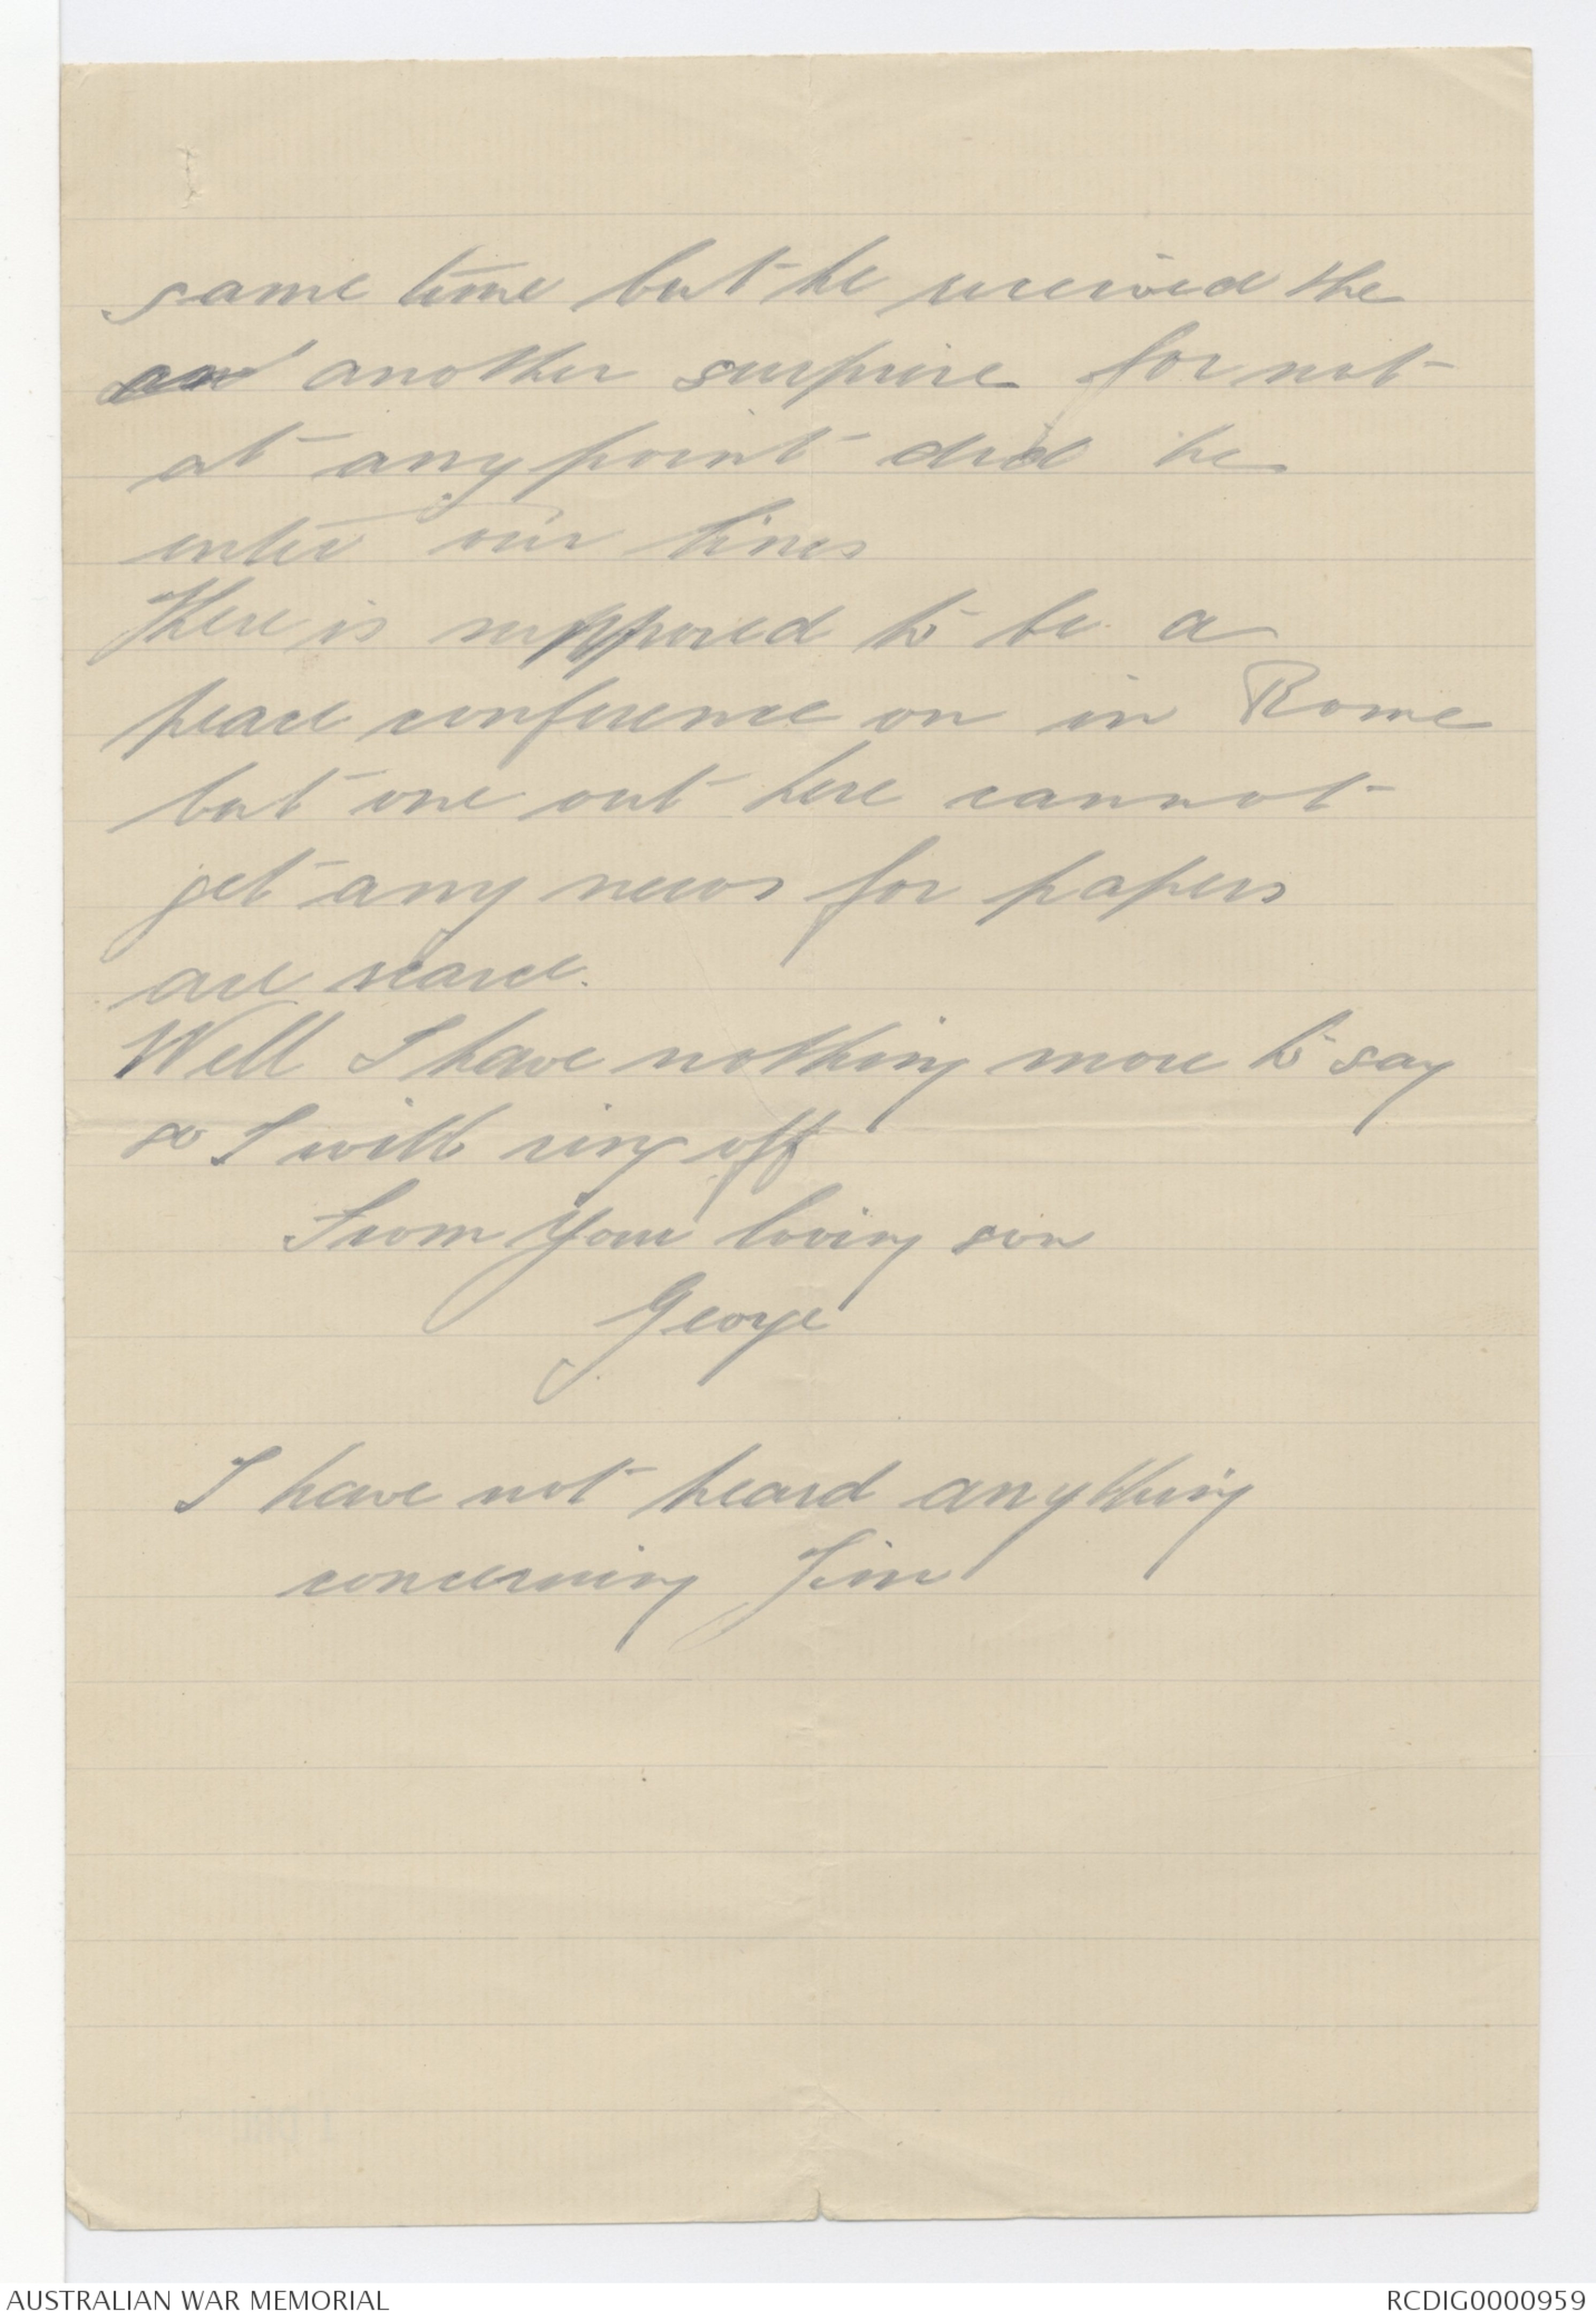 same time but he received the
an another surprise for not
at any point did he
enter our lines
There is suppposed to be a
peace conference on in Rome
but one out here cannot
get any news for papers
are scarce.
Well I have nothing more to say
so I will ring off
From your loving son
George
I have not heard anything
concerning Jim
AUSTRALIAN WAR MEMORIAL
RCDIG0000959